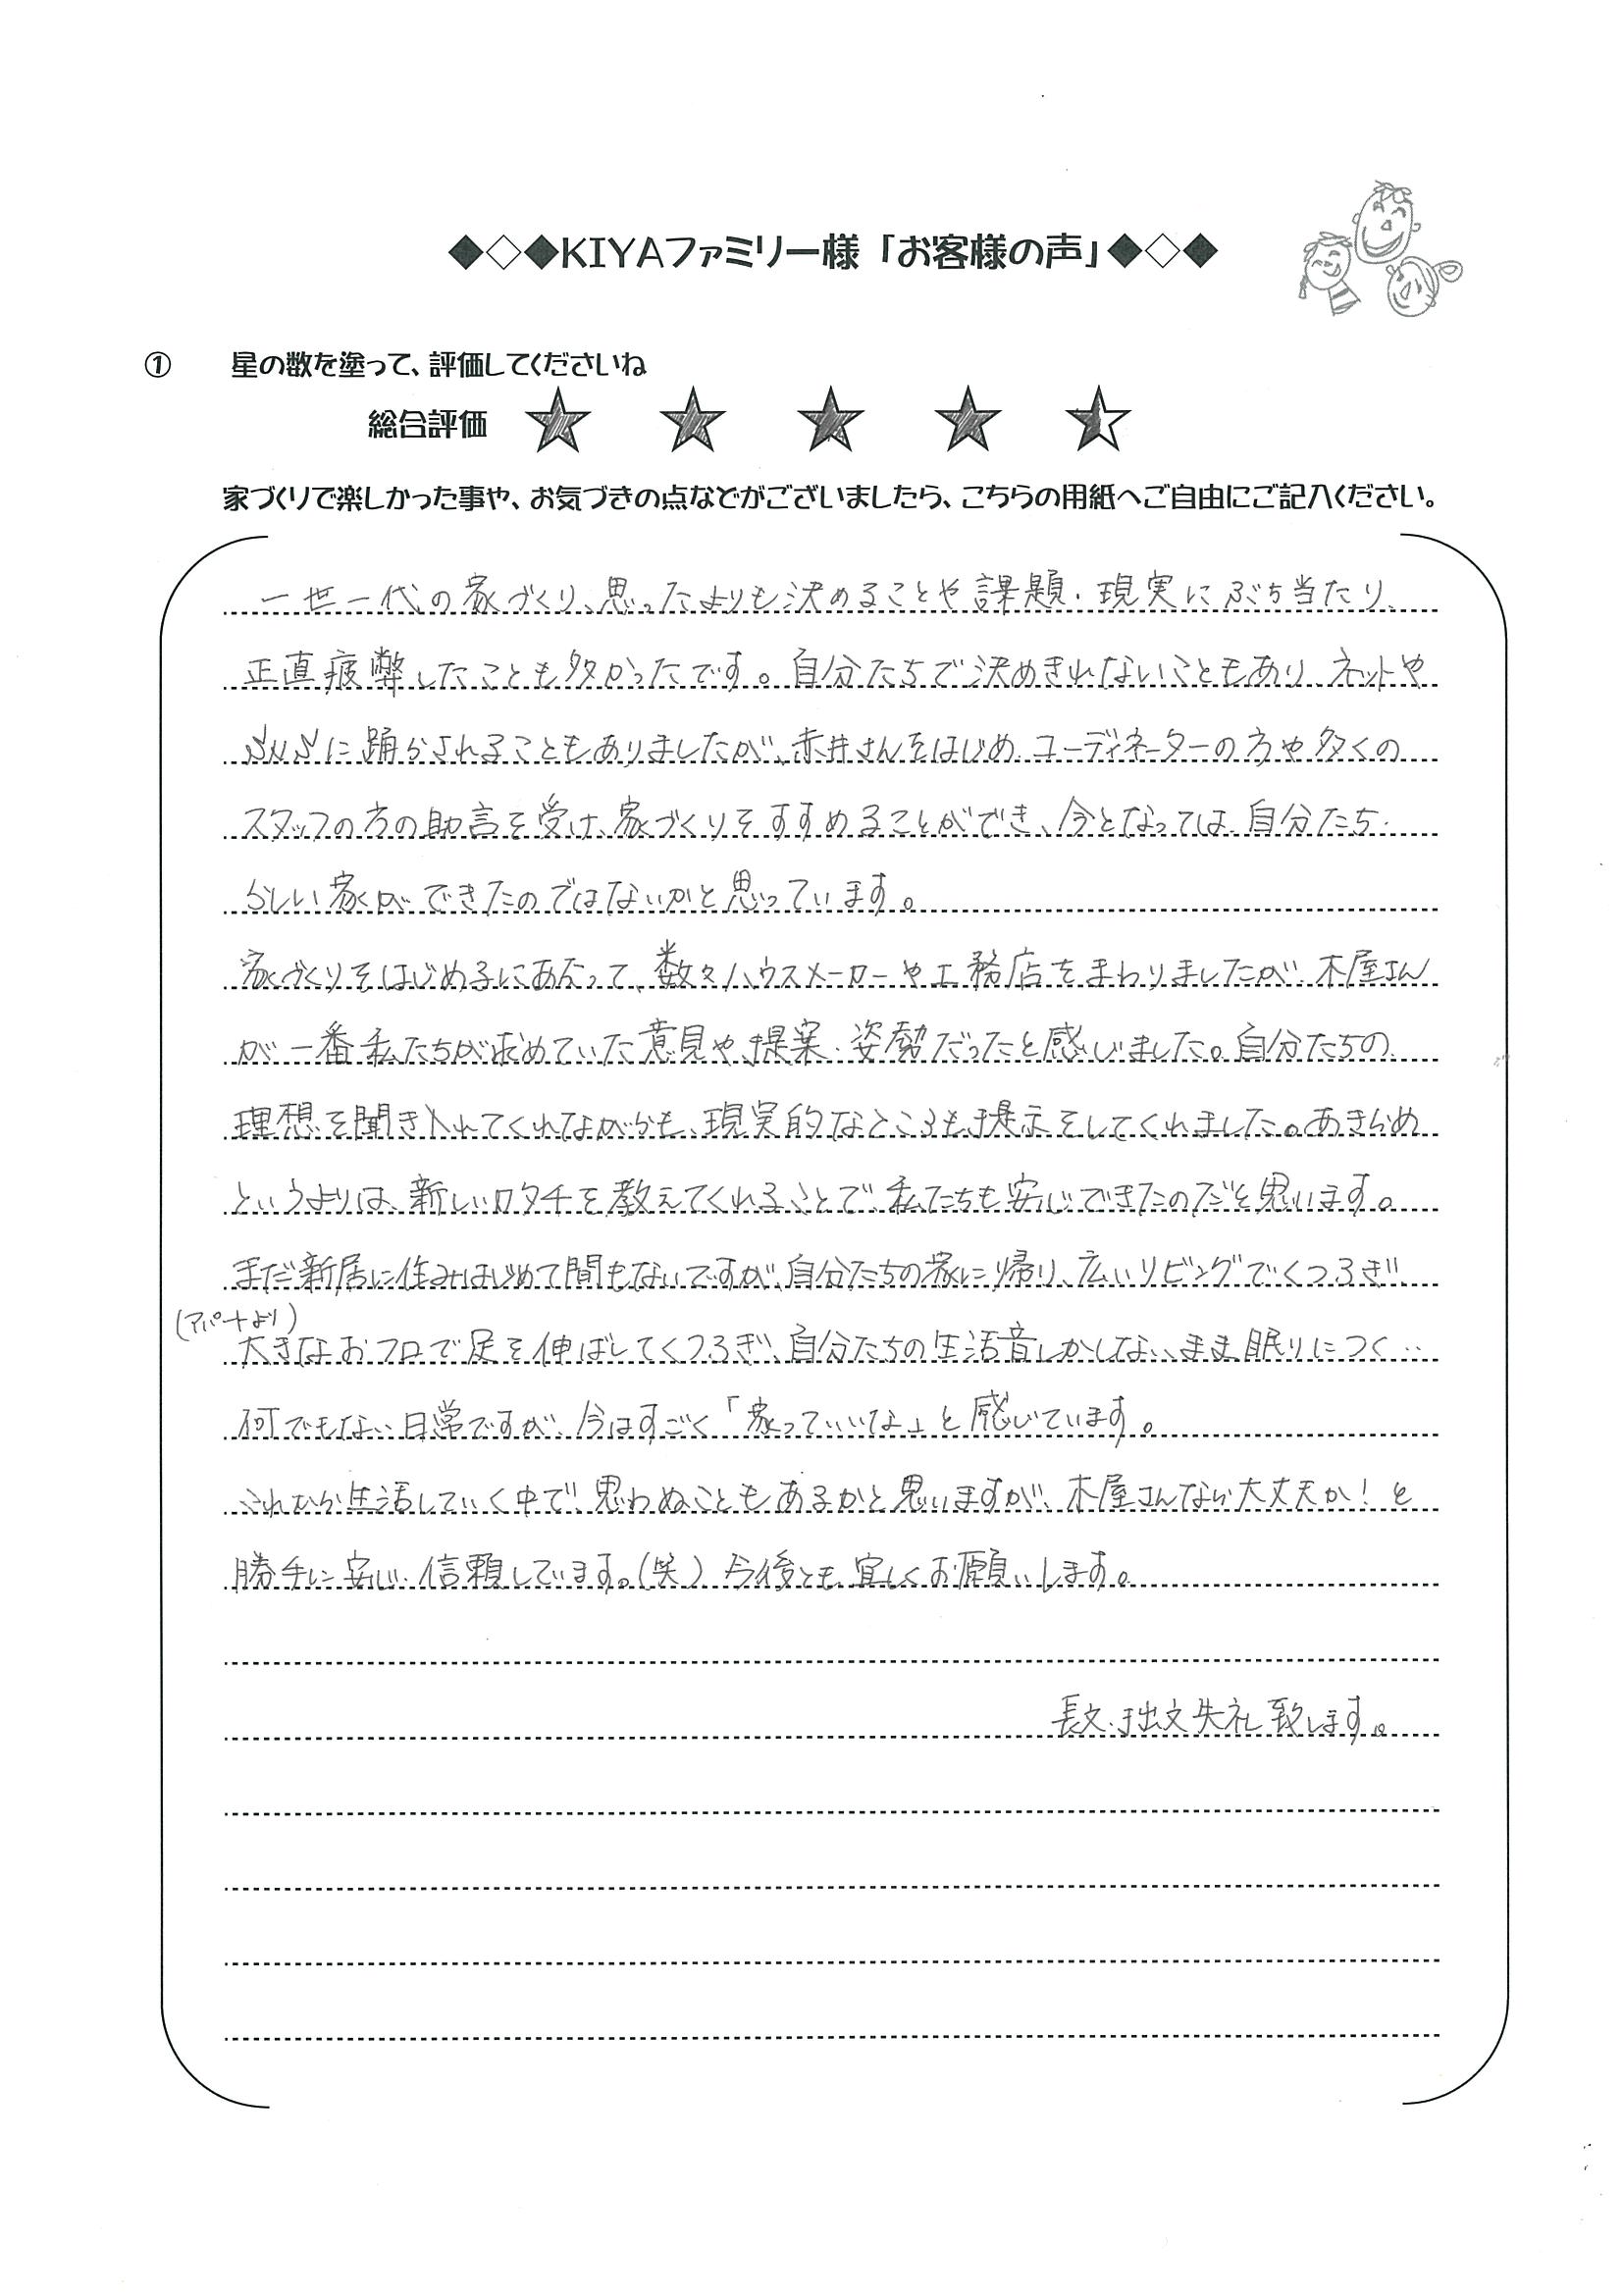 ◆◇◆KIYAファミリー様「お客様の声」◆◇◆
① 星の数を塗って、評価してくださいね
総合評価 ★ ★ ★ ★ ★
家づくりで楽しかった事や、お気づきの点などがございましたら、こちらの用紙へご自由にご記入ください。
一世一代の家づくり、思ったよりも決めることや課題・現実にぶち当たり、
正直疲弊したことも多かったです。自分たちで決めきれないこともあり、ネットや
SNSに踊らされることもありましたが、赤井さんをはじめ、コーディネーターの方や多くの
スタッフの方の助言を受け、家づくりをすすめることができ、今となっては、自分たち
らしい家ができたのではないかと思っています。
家づくりをはじめるにあたって、数々ハウスメーカーや工務店をまわりましたが、木屋さん
が一番私たちが求めていた意見や提案・姿勢だったと感じました。自分たちの
理想を聞き入れてくれながらも、現実的なところも提示をしてくれました。あきらめ
というよりは、新しいカタチを教えてくれることで、私たちも安心できたのだと思います。
まだ新居に住みはじめて間もないですが、自分たちの家に帰り、広いリビングでくつろぎ、
(アパートより)
大きなおフロで足を伸ばしてくつろぎ、自分たちの生活音しかしないまま眠りにつく…
何でもない日常ですが、今はすごく「家っていいな」と感じています。
これから生活していく中で、思わぬこともあるかと思いますが、木屋さんなら大丈夫か！と
勝手に安心・信頼しています。(笑) 今後とも、宜しくお願いします。
長文・拙文失礼致します。